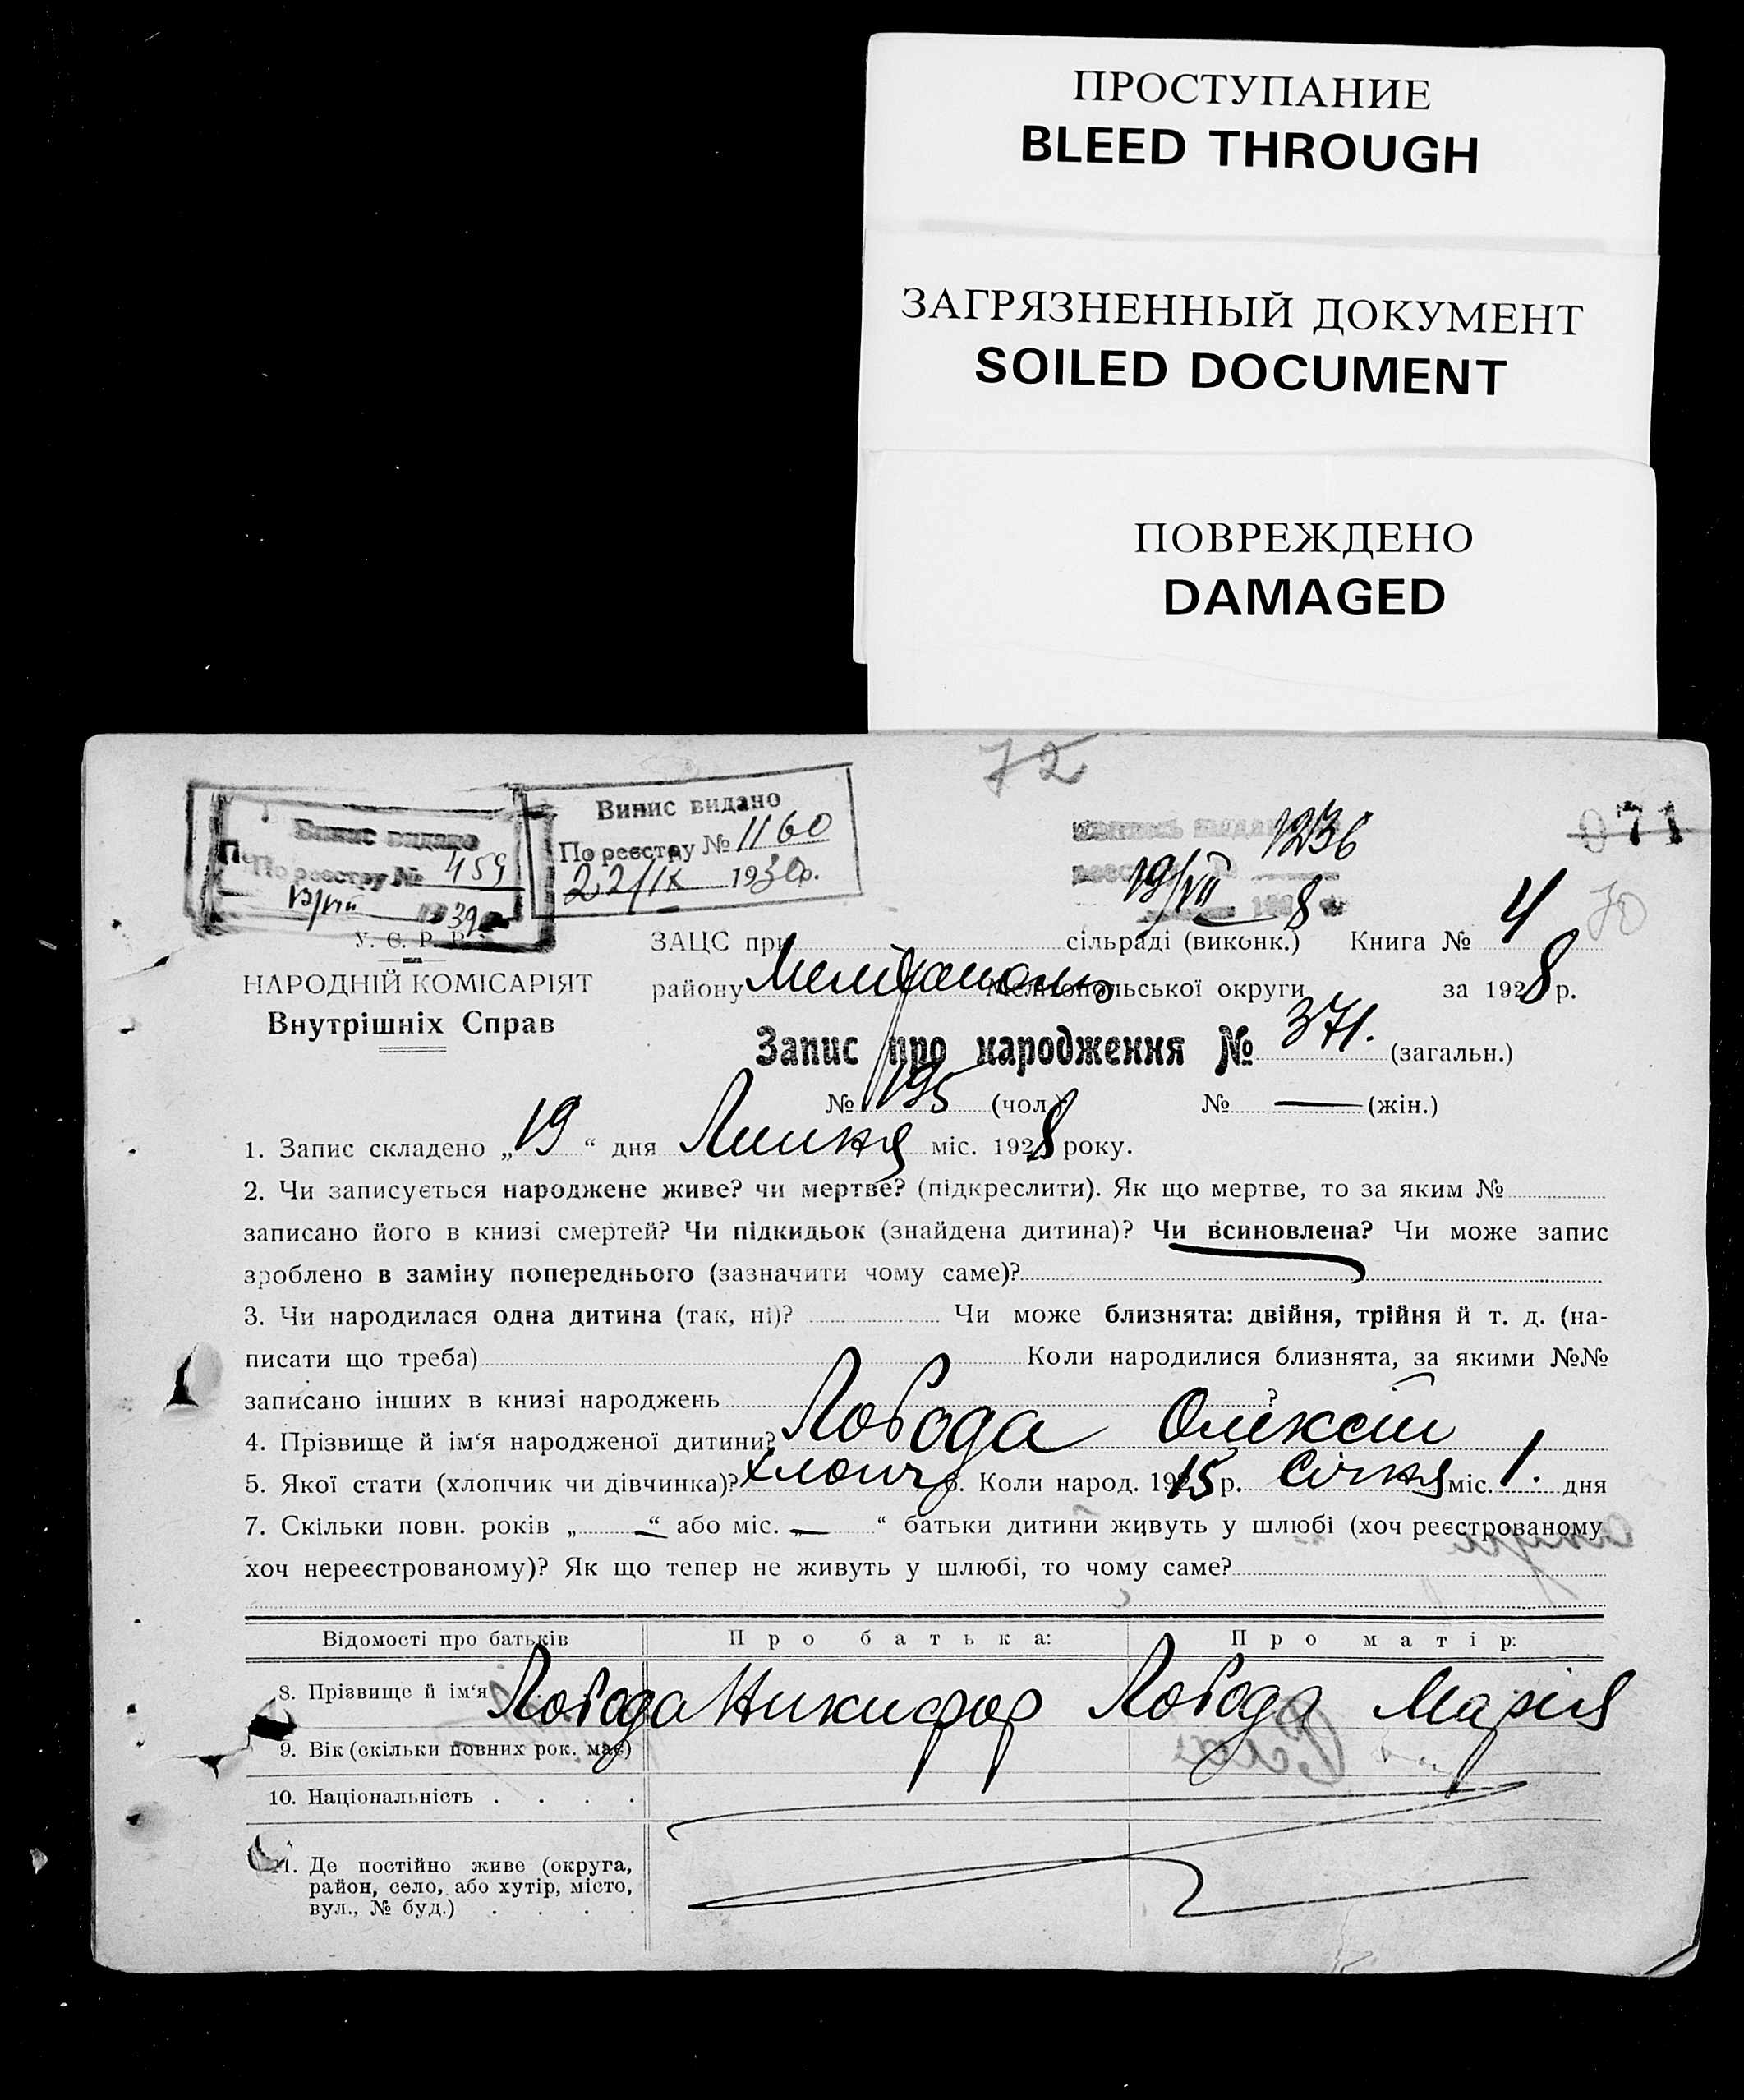 ПРОСТУПАНИЕ
BLEED THROUGH
ЗАГРЯЗНЕННЫЙ ДОКУМЕНТ
SOILED DOCUMENT
ПОВРЕЖДЕНО
DAMAGED
72
071
70
Випис видано
По реєстру № 459
1939
Випис видано
По реєстру № 1160
22/IX 1930р.
1236
19/VII 8
У. С. Р. Р.
НАРОДНІЙ КОМІСАРІЯТ
Внутрішніх Справ
ЗАЦС при сільраді (виконк.) Книга № 4
району Мелітопольської округи за 1928 р.
Запис про народження № 371. (загальн.)
№ 195 (чол.) № — (жін.)
1. Запис складено „19“ дня Липня міс. 1928 року.
2. Чи записується народжене живе? чи мертве? (підкреслити). Як що мертве, то за яким №
записано його в книзі смертей? Чи підкидьок (знайдена дитина)? Чи всиновлена? Чи може запис
зроблено в заміну попереднього (зазначити чому саме)?
3. Чи народилася одна дитина (так, ні)? Чи може близнята: двійня, трійня й т. д. (на-
писати що треба) Коли народилися близнята, за якими №№
записано інших в книзі народжень ?
4. Прізвище й ім‘я народженої дитини? Лобода Олексій
5. Якої стати (хлопчик чи дівчинка)? хлопч 6. Коли народ. 1915 р. Січня міс. 1. дня
7. Скільки повн. років „ — “ або міс. „ — “ батьки дитини живуть у шлюбі (хоч реєстрованому
хоч нереєстрованому)? Як що тепер не живуть у шлюбі, то чому саме?
Відомості про батьків Про батька: Про матір:
8. Прізвище й ім‘я Лобода Никифор Лобода Марія
9. Вік (скільки повних рок. має)
10. Національність . . . .
11. Де постійно живе (округа,
район, село, або хутір, місто,
вул., № буд.) . . . .